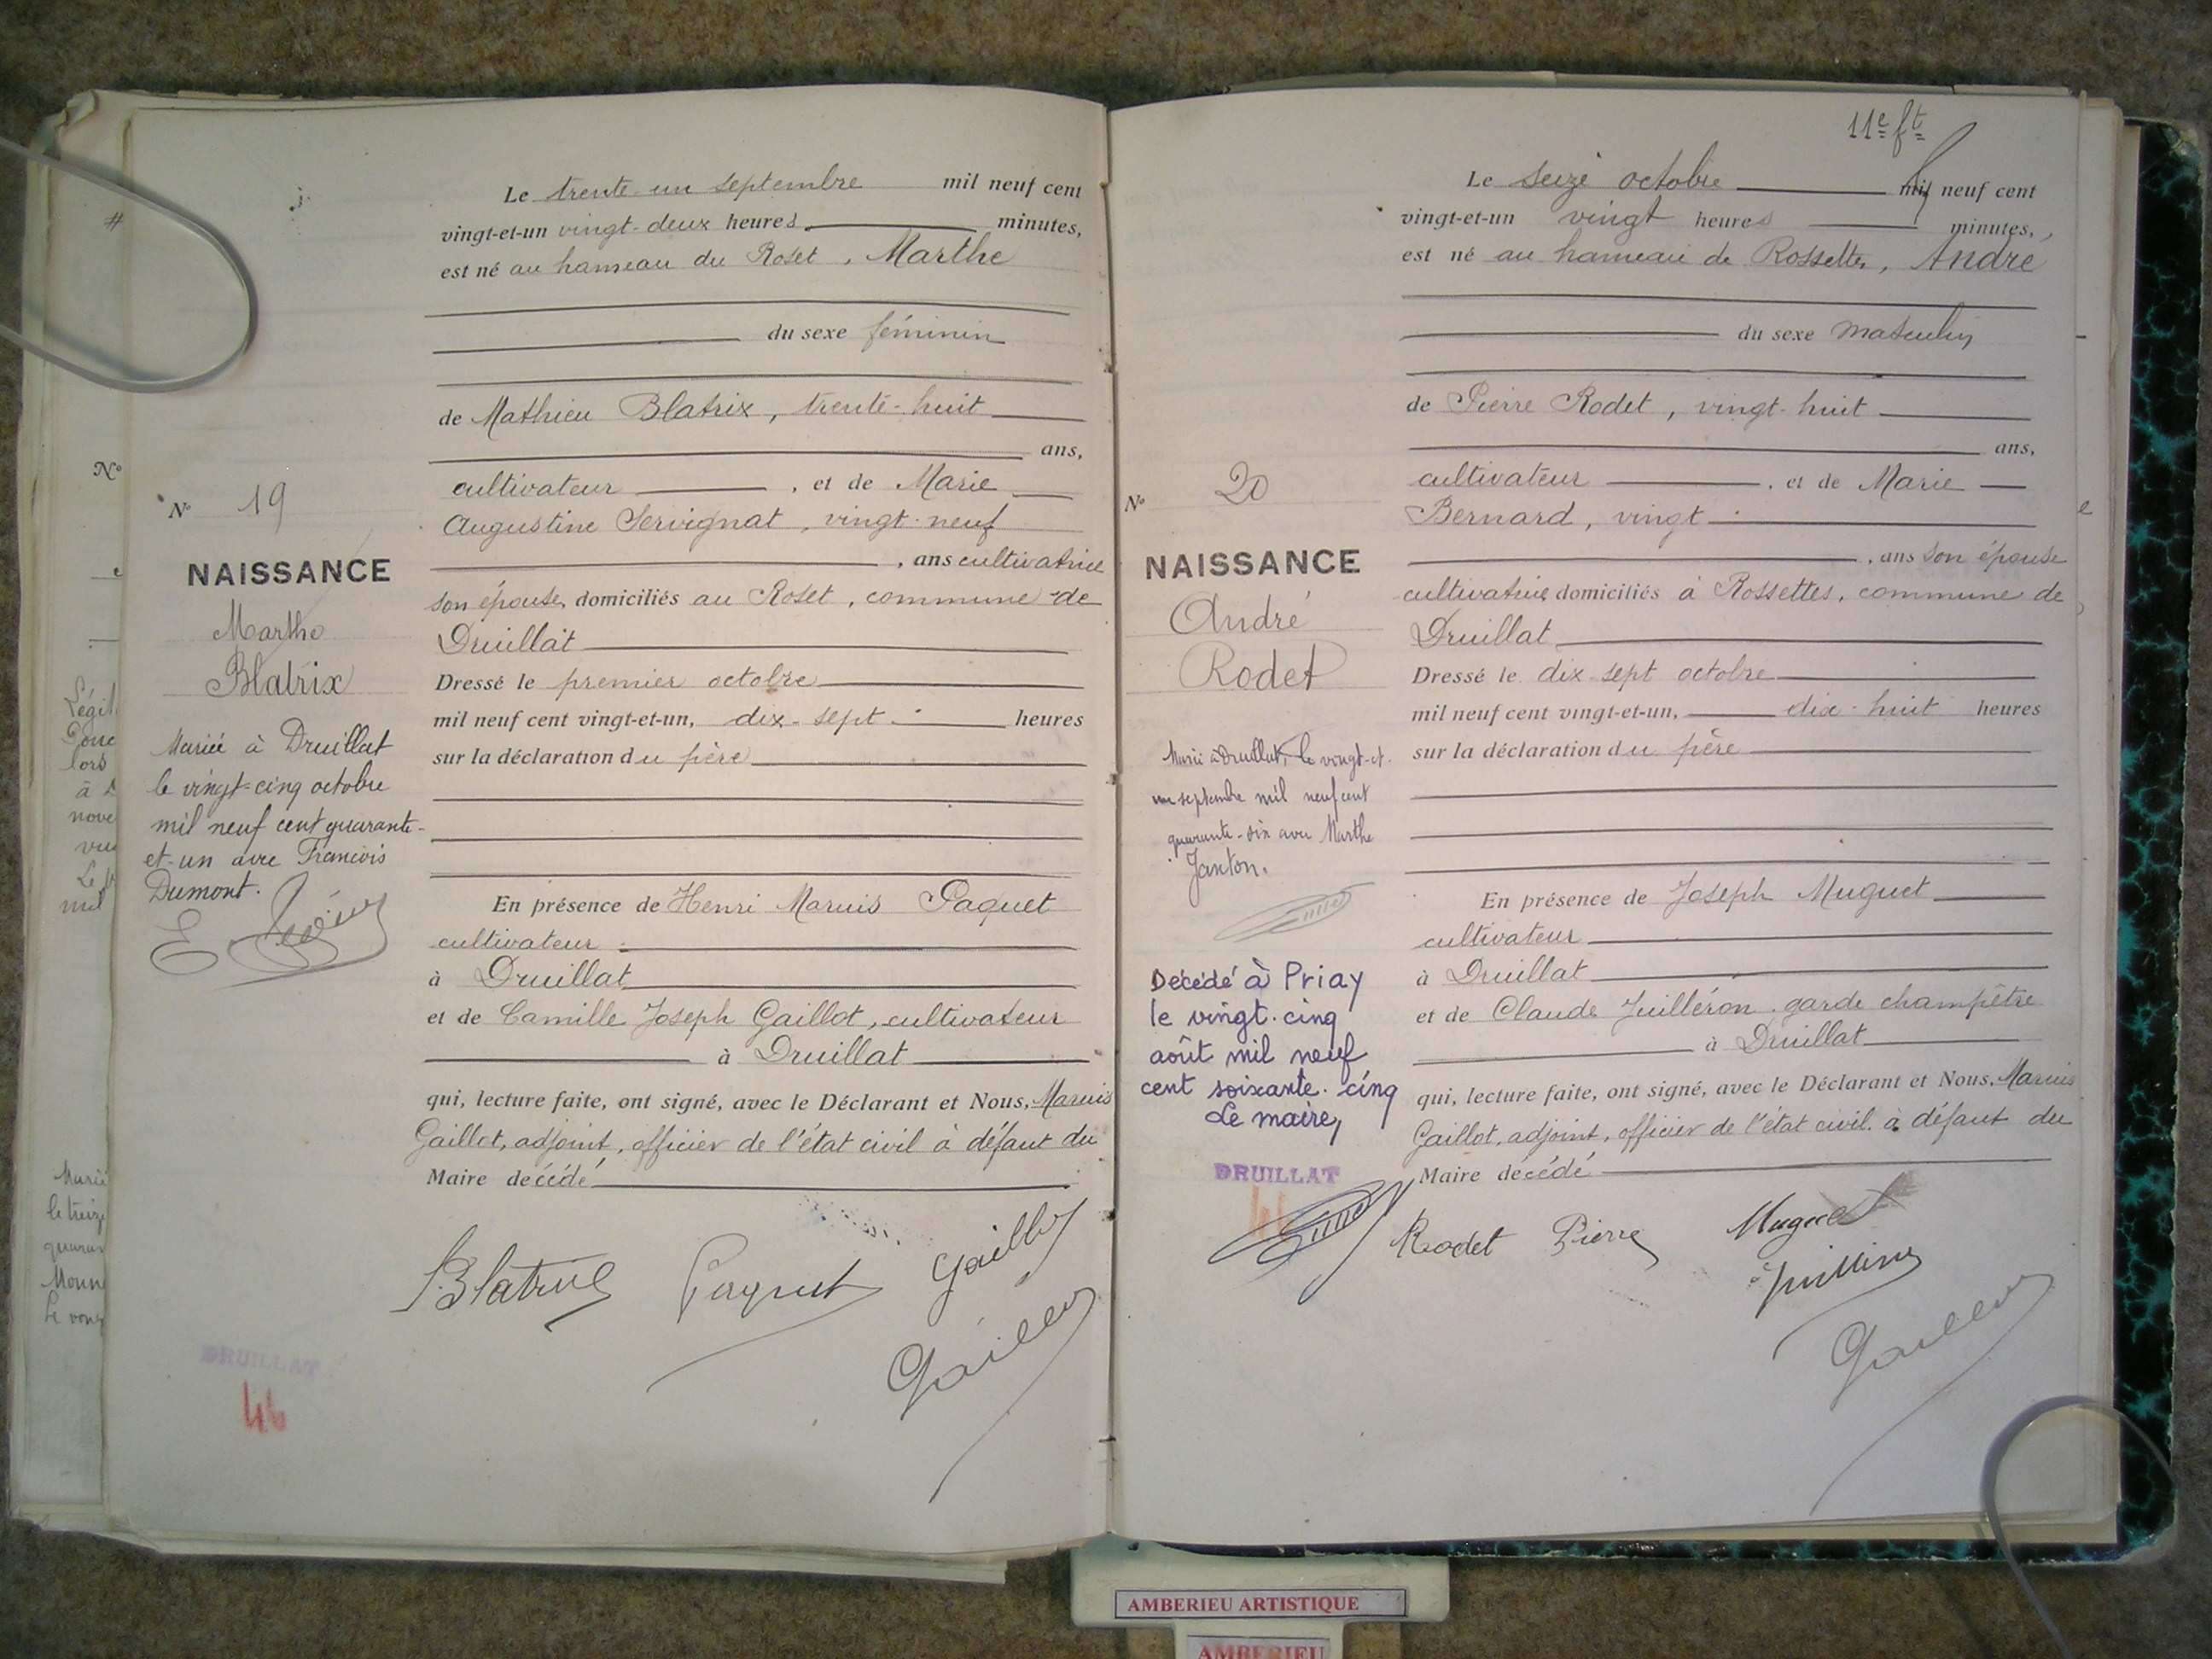 Le trente-un septembre mil neuf cent
vingt-et-un vingt-deux heures minutes,
est né au hameau du Roset, Marthe
du sexe féminin
de Mathieu Blatrix, trente-huit
ans,
cultivateur , et de Marie
Augustine Servignat, vingt-neuf
, ans cultivatrice
son épouse, domiciliés au Roset, commune de
Druillat
Dressé le premier octobre
mil neuf cent vingt-et-un, dix-sept heures
sur la déclaration du père
En présence de Henri Marius Paquet
cultivateur
à Druillat
et de Camille Joseph Gaillot, cultivateur
à Druillat
qui, lecture faite, ont signé, avec le Déclarant et Nous, Marius
Gaillot, adjoint, officier de l'état civil à défaut du
Maire décédé
Blatrix Paquet Gaillot
Gaillot
N° 19
NAISSANCE
Marthe
Blatrix
Mariée à Druillat
le vingt-cinq octobre
mil neuf cent quarante-
et-un avec François
Dumont.
DRUILLAT
46
N°
11e ft
Le seize octobre mil neuf cent
vingt-et-un vingt heures minutes,
est né au hameau de Rossettes, André
du sexe masculin
de Pierre Rodet, vingt-huit
ans,
cultivateur , et de Marie
Bernard, vingt
, ans son épouse
cultivatrice domiciliés à Rossettes, commune de
Druillat
Dressé le dix-sept octobre
mil neuf cent vingt-et-un, dix-huit heures
sur la déclaration du père
En présence de Joseph Muguet
cultivateur
à Druillat
et de Claude Juilléron garde champêtre
à Druillat
qui, lecture faite, ont signé, avec le Déclarant et Nous, Marius
Gaillot, adjoint, officier de l'état civil à défaut du
Maire décédé
Rodet Pierre Muguet
Gaillot
N° 20
NAISSANCE
André
Rodet
Marié à Druillat, le vingt-et-
un septembre mil neuf cent
quarante-six avec Marthe
Janton.
Décédé à Priay
le vingt-cinq
août mil neuf
cent soixante-cinq
Le maire,
DRUILLAT
AMBERIEU ARTISTIQUE
AMBERIEU